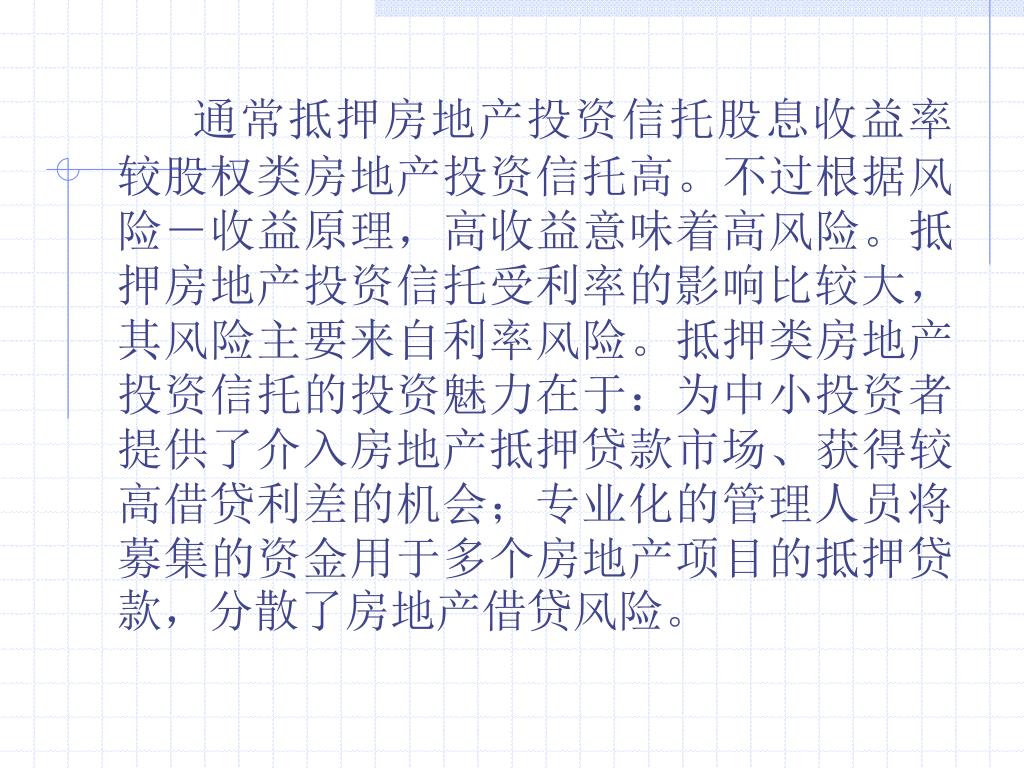 通常抵押房地产投资信托股息收益率
较股权类房地产投资信托高。不过根据风
险－收益原理，高收益意味着高风险。抵
押房地产投资信托受利率的影响比较大，
其风险主要来自利率风险。抵押类房地产
投资信托的投资魅力在于：为中小投资者
提供了介入房地产抵押贷款市场、获得较
高借贷利差的机会；专业化的管理人员将
募集的资金用于多个房地产项目的抵押贷
款，分散了房地产借贷风险。